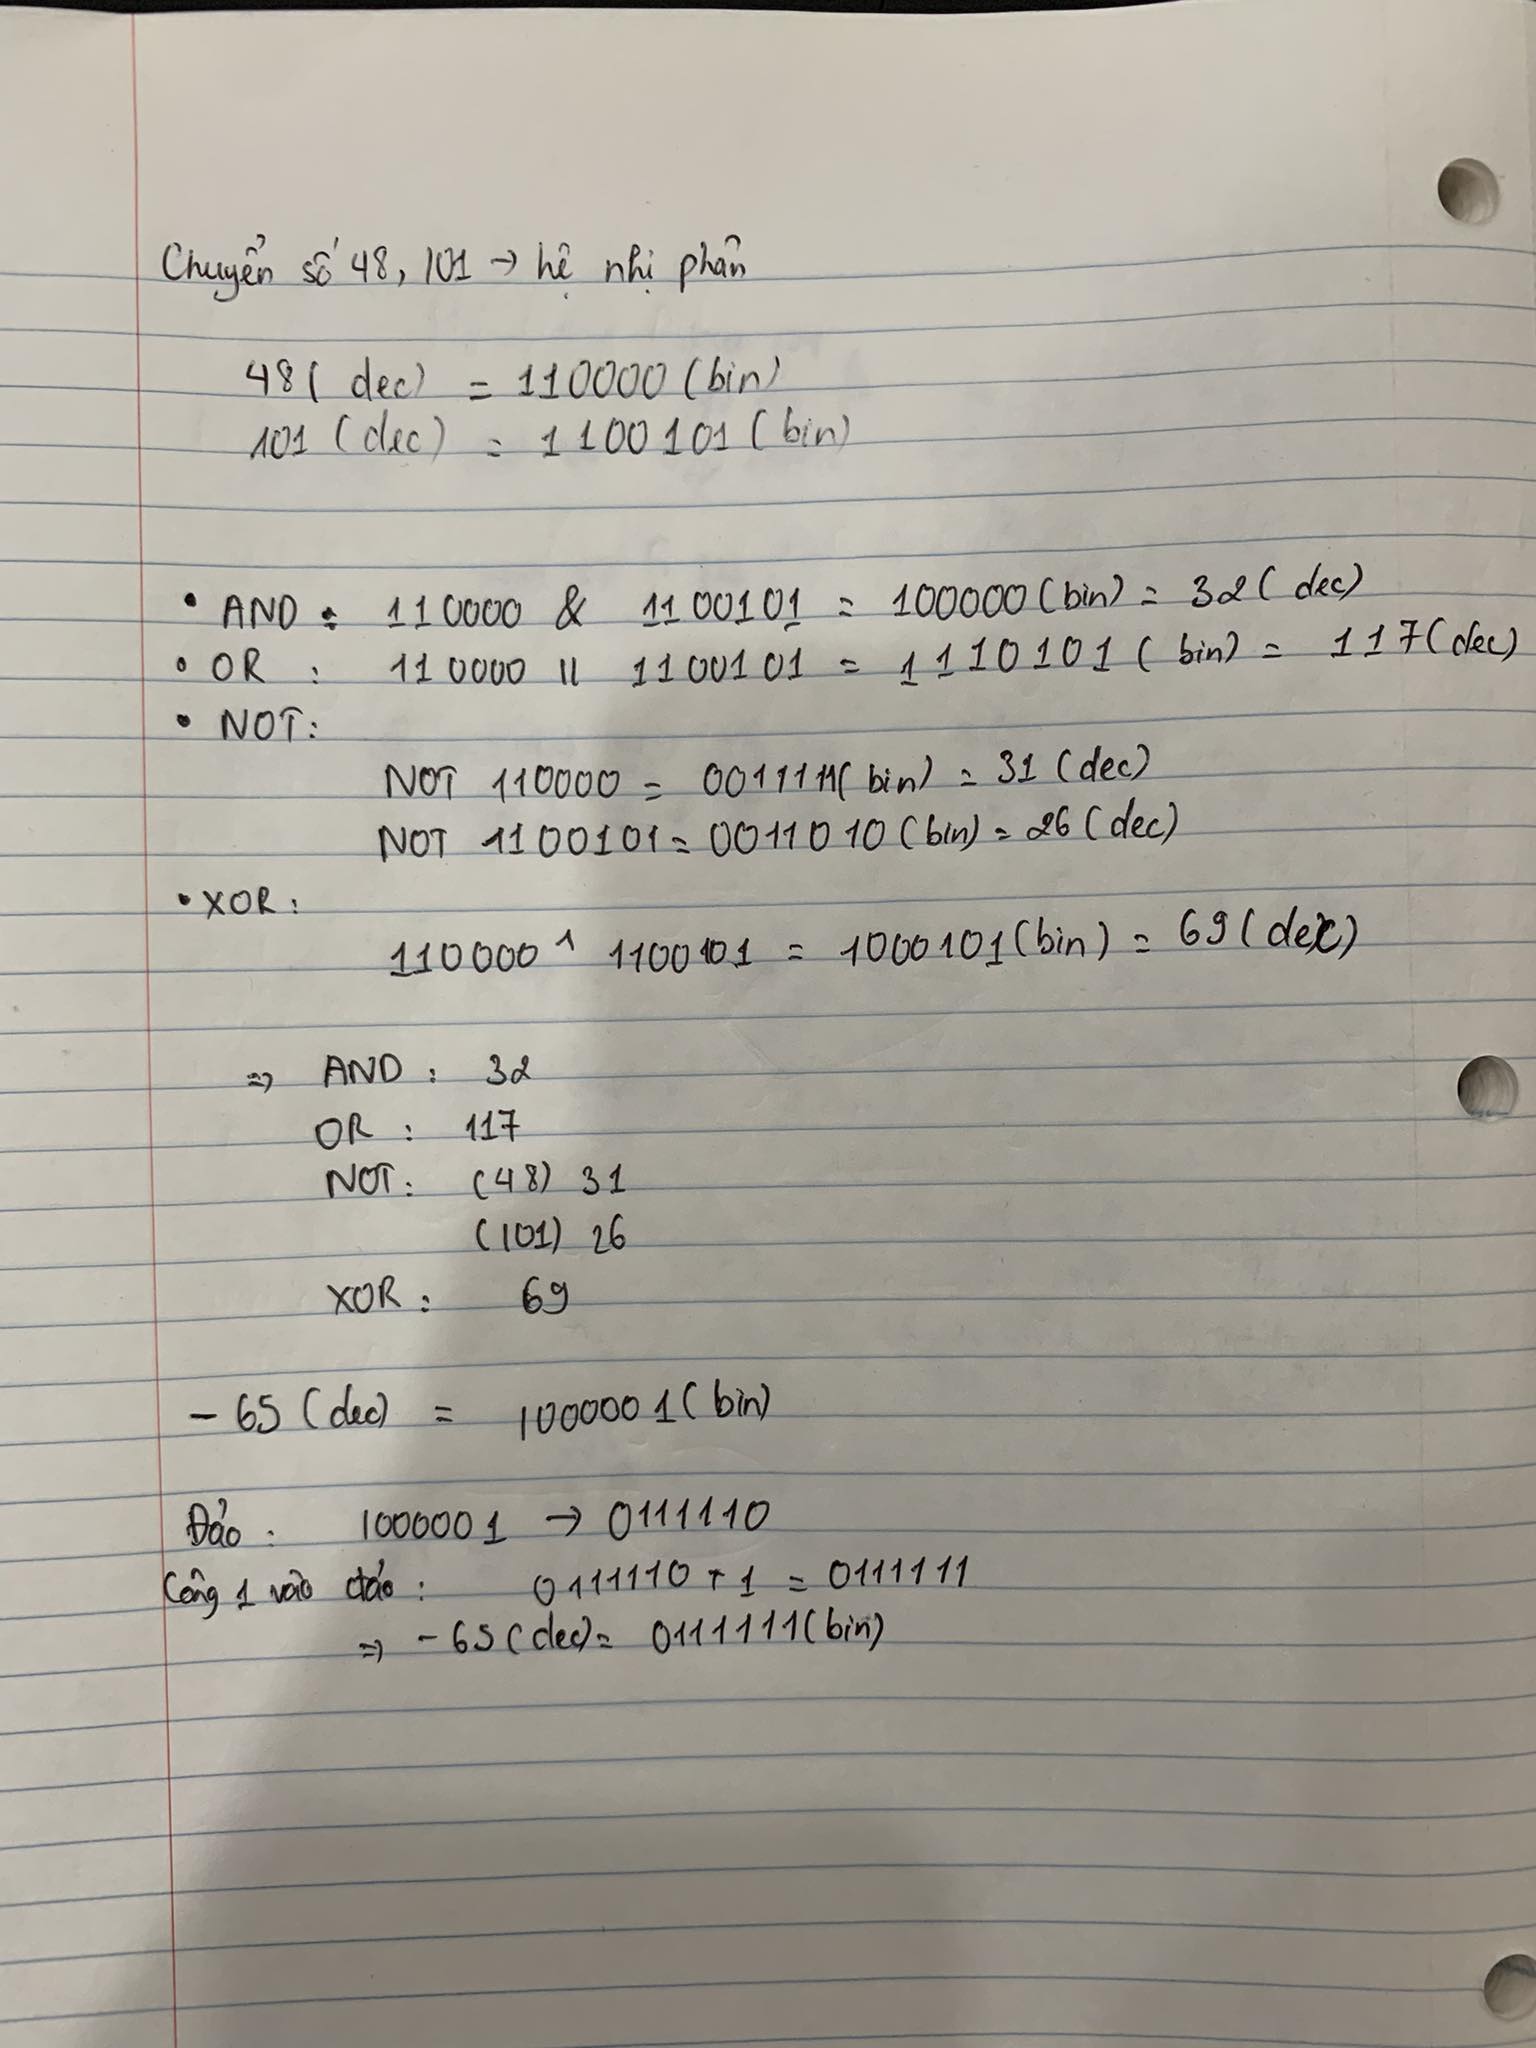 Chuyển số 48, 101 → hệ nhị phân
48 ( dec) = 110000 (bin)
101 (dec) = 1100101 (bin)
• AND : 110000 & 1100101 = 100000 (bin) = 32 ( dec)
• OR : 110000 || 1100101 = 1110101 ( bin) = 117 (dec)
• NOT:
NOT 110000 = 0011111 (bin) = 31 (dec)
NOT 1100101 = 0011010 (bin) = 26 (dec)
• XOR:
110000 ^ 1100101 = 1000101 (bin) = 69 (dec)
=> AND : 32
OR : 117
NOT: (48) 31
(101) 26
XOR : 69
- 65 (dec) = 1000001 (bin)
Đảo : 1000001 → 0111110
Cộng 1 vào đảo : 0111110 + 1 = 0111111
=> -65 (dec) = 0111111 (bin)